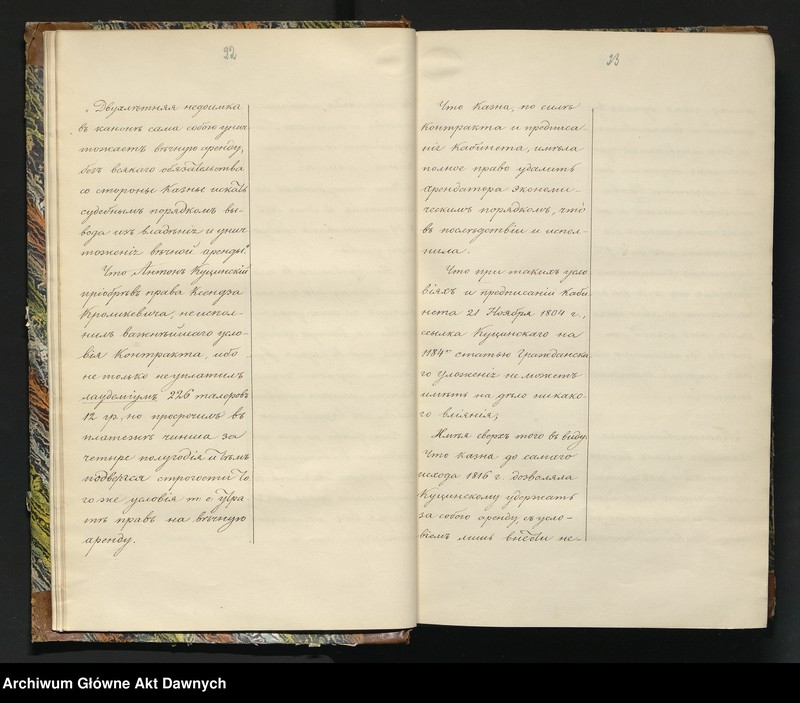 22
„Двухлѣтняя недоимка
въ канонѣ сама собою унич
тожаетъ вѣчную аренду,
безъ всякаго обязательства
со стороны Казны искать
судебнымъ порядкомъ вы-
вода ихъ владѣнія и унич
тоженія вѣчной аренды."
Что Антонъ Куцинскій
пріобрѣвъ права Ксендза
Кроликевича, неиспол-
нилъ важнѣйшаго усло-
вія Контракта, ибо
не только неуплатилъ
лаудеміумъ 226 талеровъ
12 гр., но просрочилъ въ
платежѣ чинша за
четыре полугодія и тѣмъ
подвергся строгости то
го же условія т. е. утра-
тѣ правъ на вѣчную
аренду.
23
Что Казна, по силѣ
Контракта и предписа
нія Кабинета, имѣла
полное право удалить
арендатора экономи-
ческимъ порядкомъ, что
въ послѣдствіи и испол-
нила.
Что при такихъ усло
віяхъ и предписаніи Каби
нета 21 Ноября 1804 г.,
ссылка Куцинскаго на
1184ю статью Гражданска
го уложенія неможетъ
имѣть на дѣло никако-
го вліянія;
Имѣя сверхъ того въ виду:
Что казна до самаго
исхода 1816 г. дозволяла
Куцинскому удержать
за собою аренду съ усло-
віемъ лишь не-
Archiwum Główne Akt Dawnych